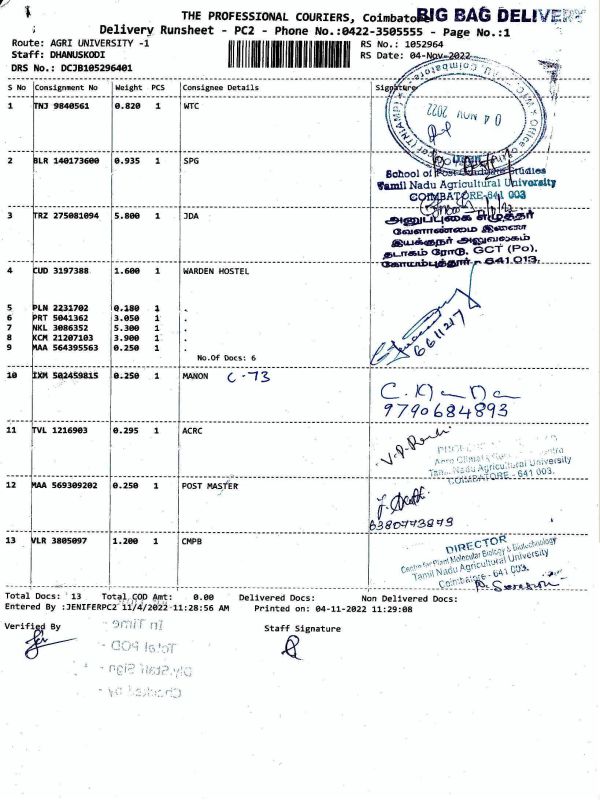 THE PROFESSIONAL COURIERS, Coimbatore
BIG BAG DELIVERY
Delivery Runsheet - PC2 - Phone No.:0422-3505555 - Page No.:1
Route: AGRI UNIVERSITY -1
RS No.: 1052964
Staff: DHANUSKODI
RS Date: 04-Nov-2022
DRS No.: DCJB105296401
S No Consignment No Weight PCS Consignee Details Signature
1 TNJ 9840561 0.820 1 WTC
04 NOV 2022
2 BLR 140173600 0.935 1 SPG
School of Post Graduate Studies
Tamil Nadu Agricultural University
COIMBATORE-641 003
3 TRZ 275081094 5.800 1 JDA
அனுப்புகை எழுத்தர்
வேளாண்மை இணை
இயக்குநர் அலுவலகம்
தடாகம் ரோடு, GCT (Po),
கோயம்புத்தூர் - 641 013.
4 CUD 3197388 1.600 1 WARDEN HOSTEL
5 PLN 2231702 0.180 1 .
6 PRT 5041362 3.050 1 .
7 NKL 3086352 5.300 1 .
8 KCM 21207103 3.900 1 .
9 MAA 564395563 0.250 1 .
6611217
No.Of Docs: 6
10 IXM 502459815 0.250 1 MANON C-73
9790684893
11 TVL 1216903 0.295 1 ACRC
Tamil Nadu Agricultural University
COIMBATORE - 641 003.
12 MAA 569309202 0.250 1 POST MASTER
13 VLR 3805097 1.200 1 CMPB
DIRECTOR
Centre for Plant Molecular Biology & Biotechnology
Tamil Nadu Agricultural University
Coimbatore - 641 003.
Total Docs: 13 Total COD Amt: 0.00 Delivered Docs: Non Delivered Docs:
Entered By :JENIFERPC2 11/4/2022 11:28:56 AM Printed on: 04-11-2022 11:29:08
Verified By Staff Signature
In Time -
Total POD -
Dly.Staff Sign -
Checked by -